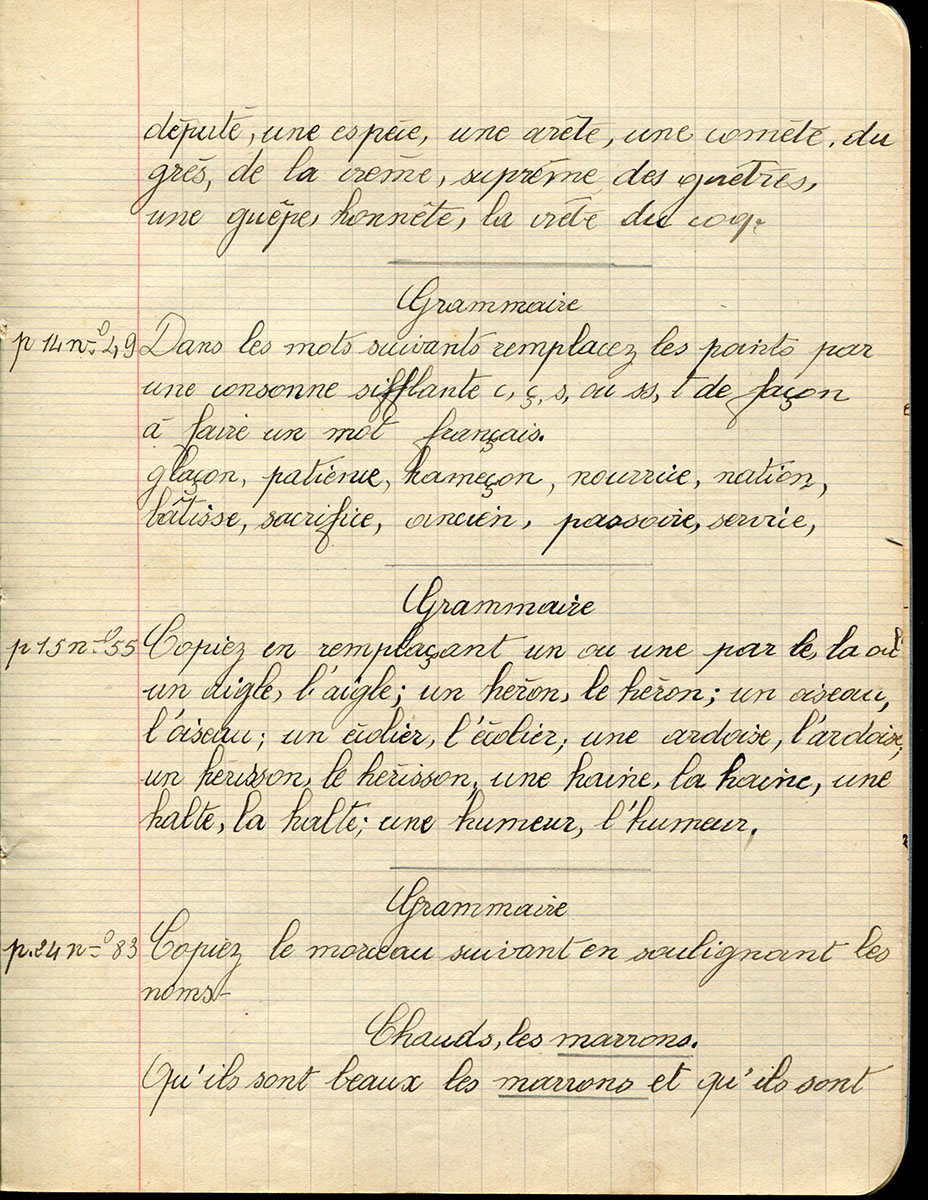 député, une espèce, une arête, une comète, du
grès, de la crème, suprême, des guêtres,
une guêpe, honnête, la crête du coq.
Grammaire
p 14 nº 49 Dans les mots suivants remplacez les points par
une consonne sifflante c, ç, s, ou ss, t de façon
à faire un mot français.
glaçon, patience, hameçon, nourrice, nation,
bâtisse, sacrifice, ancien, passoire, service,
Grammaire
p 15 nº 55 Copiez en remplaçant un ou une par le, la ou l'
un aigle, l'aigle; un héron, le héron; un oiseau,
l'oiseau; un écolier, l'écolier; une ardoise, l'ardoise;
un hérisson, le hérisson; une haine, la haine, une
halte, la halte; une humeur, l'humeur.
Grammaire
p. 24 nº 83 Copiez le morceau suivant en soulignant les
noms-
Chauds, les marrons.
Qu'ils sont beaux les marrons et qu'ils sont